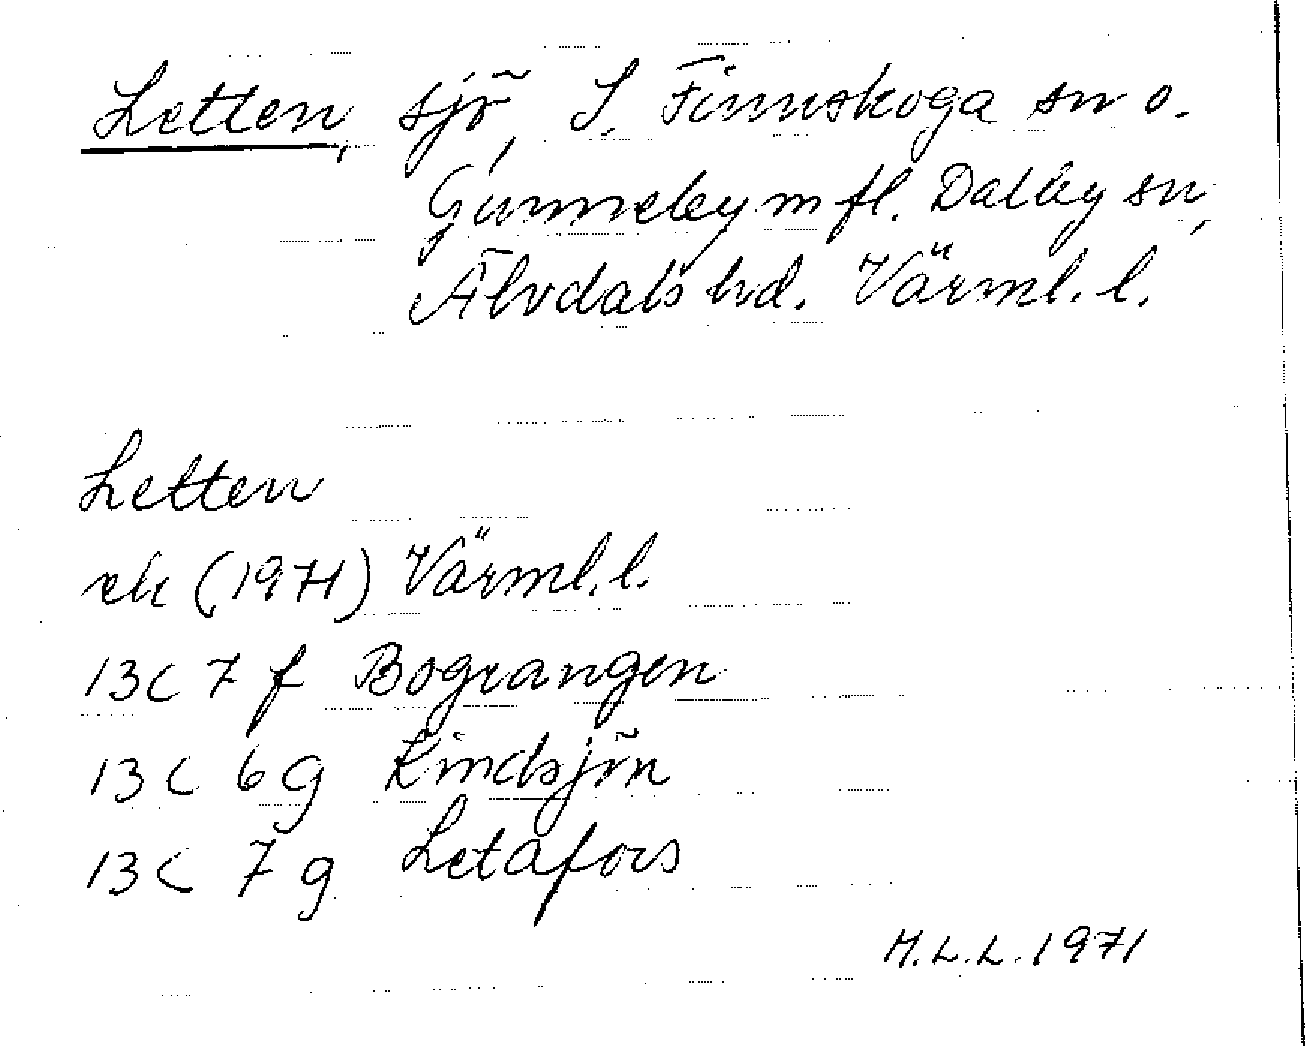 Letten, sjö, S. Finnskoga sn o.
Gunneby m fl. Dalby sn,
Älvdals hd. Värml. l.
Letten
ek (1971) Värml. l.
13C 7 f Bograngen
13C 6 g Lindsjön
13C 7 g Letafors
M.L.L. 1971